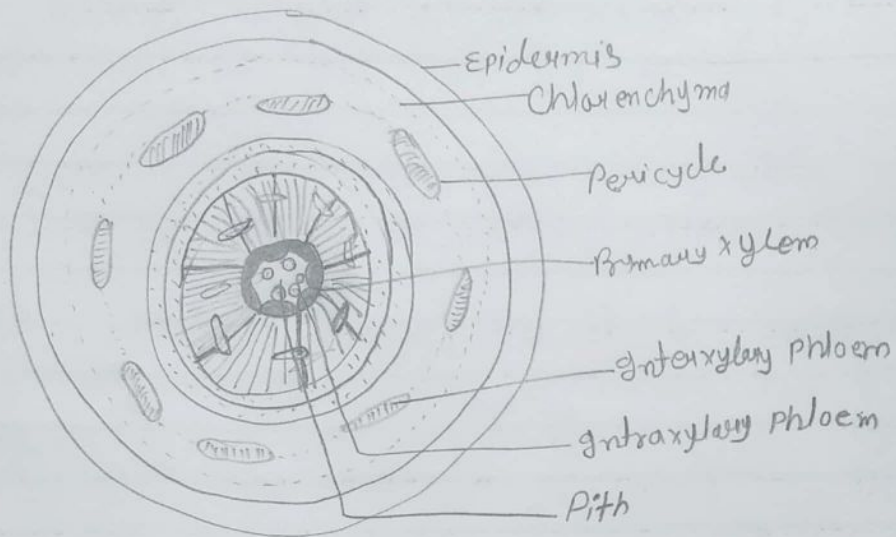 Epidermis
Chlorenchyma
Pericycle
Primary xylem
Interxylary Phloem
Intraxylary Phloem
Pith